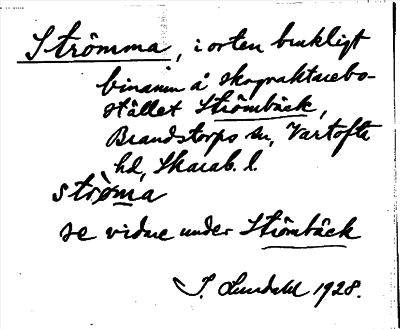 Strömma, i orten brukligt
binamn å skogvaktarebo-
stället Strömbäck,
Brandstorps sn, Vartofta
hd, Skarab. l.
ströma
se vidare under Strömbäck
I. Lundahl 1928.